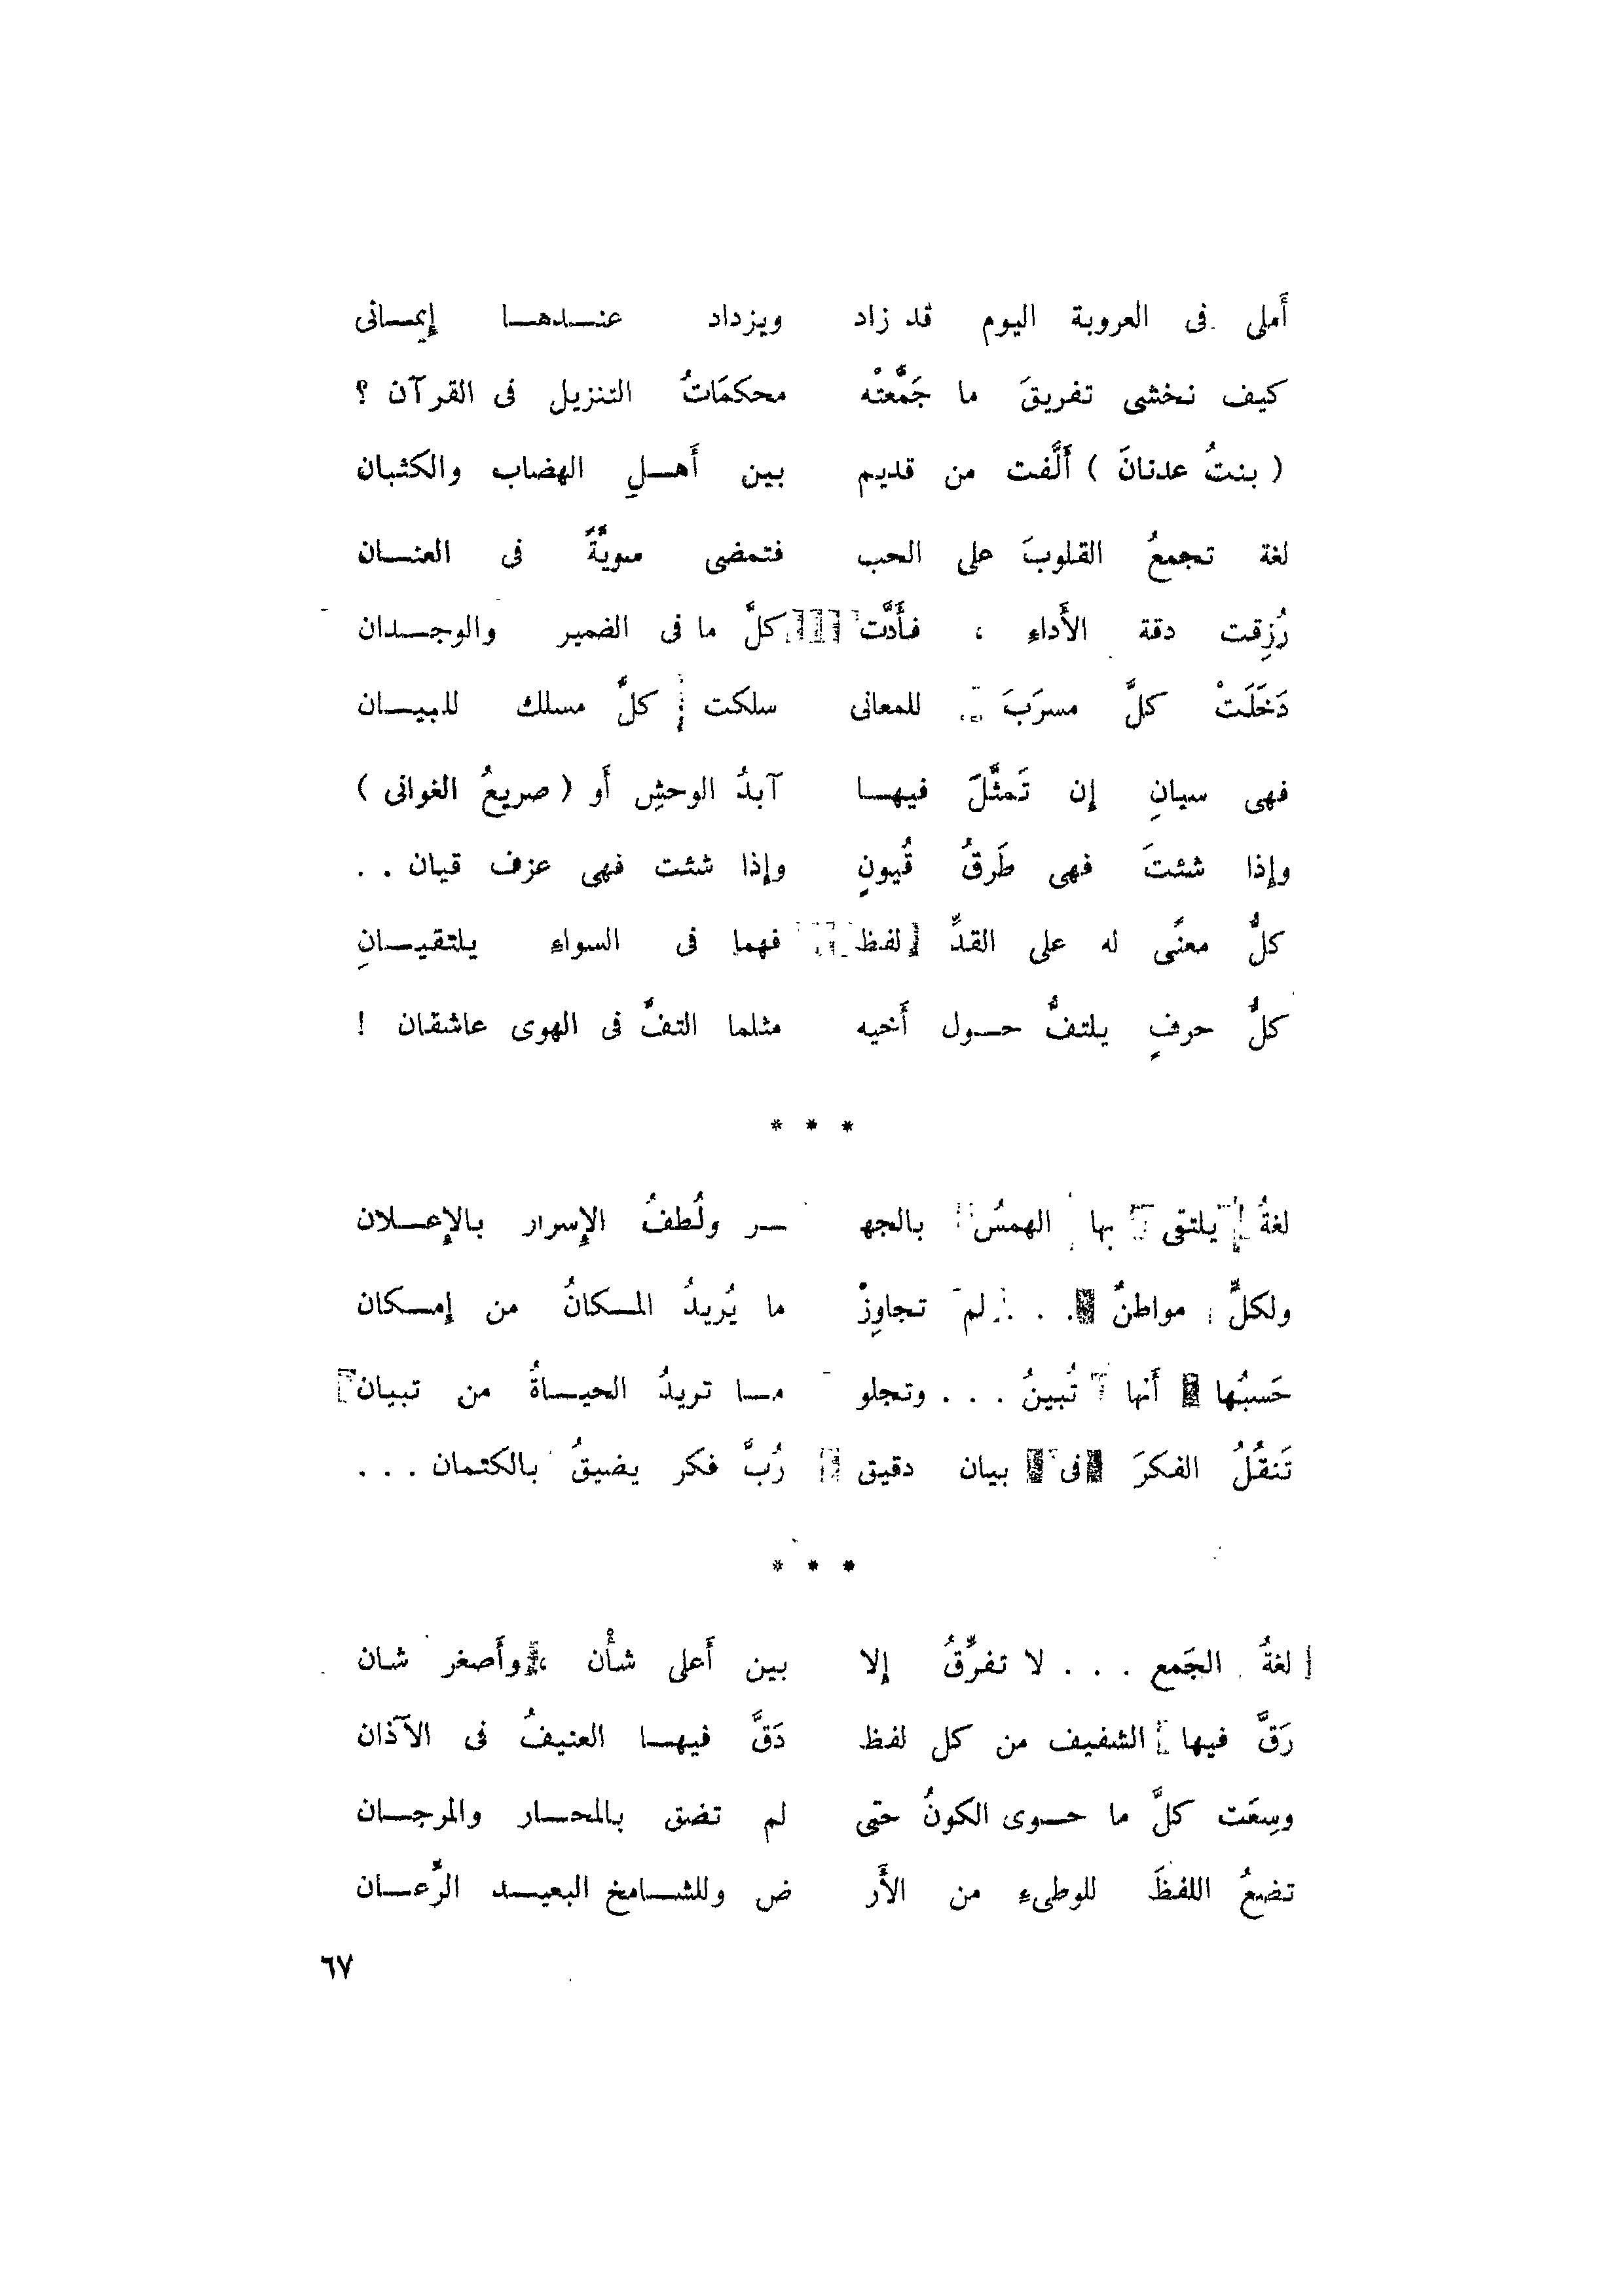 أَملى فى العروبة اليوم قد زاد ويزداد عنــدهــا إيمــانى
كيف نخشى تفريقَ ما جَمَّعتْه محكمَاتُ التنزيل فى القرآن ؟
( بنتُ عدنانَ ) أَلَّفت من قديم بين أَهــلِ الهضاب والكثبان
لغة تجمعُ القلوبَ على الحب فتمضى سويَّةً فى العنــان
رُزِقت دقة الأَداءِ ، فأَدَّت كلَّ ما فى الضمير والوجــدان
دَخَلَتْ كلَّ مسرَبَ للمعانى سلكت كلَّ مسلك للبيــان
فهى سيانِ إن تَمثَّلَ فيهــا آبدُ الوحشِ أَو ( صريعُ الغوانى )
وإذا شئتَ فهى طَرقُ قُيونٍ وإذا شئت فهى عزف قيان . .
كلُّ معنًى له على القدِّ لفظ فهما فى السواءِ يلتقيــانِ
كلُّ حرفٍ يلتفُّ حــول أَخيه مثلما التفَّ فى الهوى عاشقان !
* * *
لغةُ يلتقى بها الهمسُ بالجهـ ــر ولُطفُ الإسرار بالإعــلان
ولكلٍّ مواطنٌ . . . لم تجاوِزْ ما يُريدُ المــكانُ من إمــكان
حَسبُها أَنها تُبينُ . . . وتجلو مــا تريدُ الحيــاةُ من تبيان
تَنقُلُ الفكرَ فى بيان دقيق رُبَّ فكر يضيقُ بالكتمان . . .
* * *
لغةُ الجَمع . . . لا تفرِّقُ إلا بين أَعلى شأْن ، وأَصغر شان
رَقَّ فيها الشفيف من كل لفظ دَقَّ فيهــا العنيفُ فى الآذان
وسِعَت كلَّ ما حــوى الكونُ حتى لم تضق بالمحــار والمرجــان
تضعُ اللفظَ للوطىءِ من الأَر ض وللشــامخ البعيــد الرِّعــان
٦٧